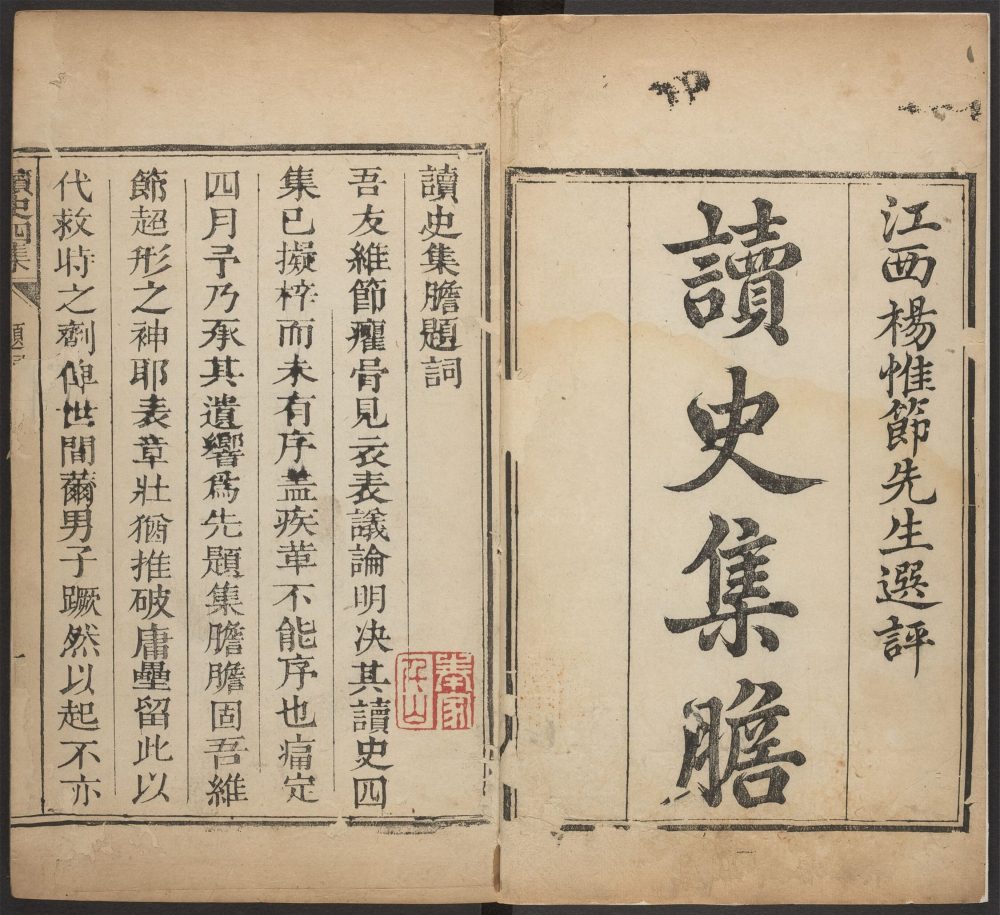 江西楊惟節先生選評
讀史集膽
讀史集膽題詞
吾友維節癯骨見衣表議論明决其讀史四
集已擬梓而未有序盖疾革不能序也痛定
四月予乃承其遺響爲先題集膽膽固吾維
節超形之神耶表章壯猶推破庸壘留此以
代救時之劑俾世間薾男子蹶然以起不亦
讀史四集
題詞
一